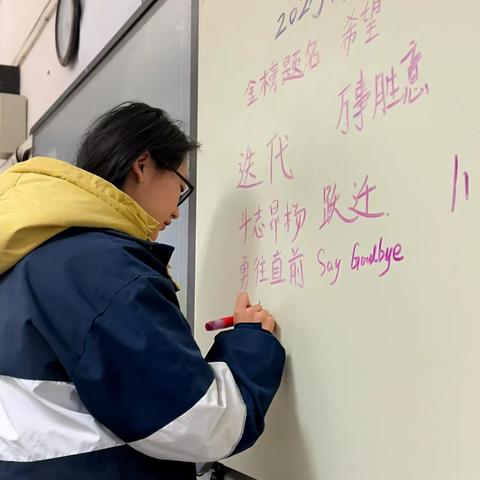 希望
金榜题名
万事胜意
迭代
斗志昂杨 跃迁
勇往直前 Say Goodbye